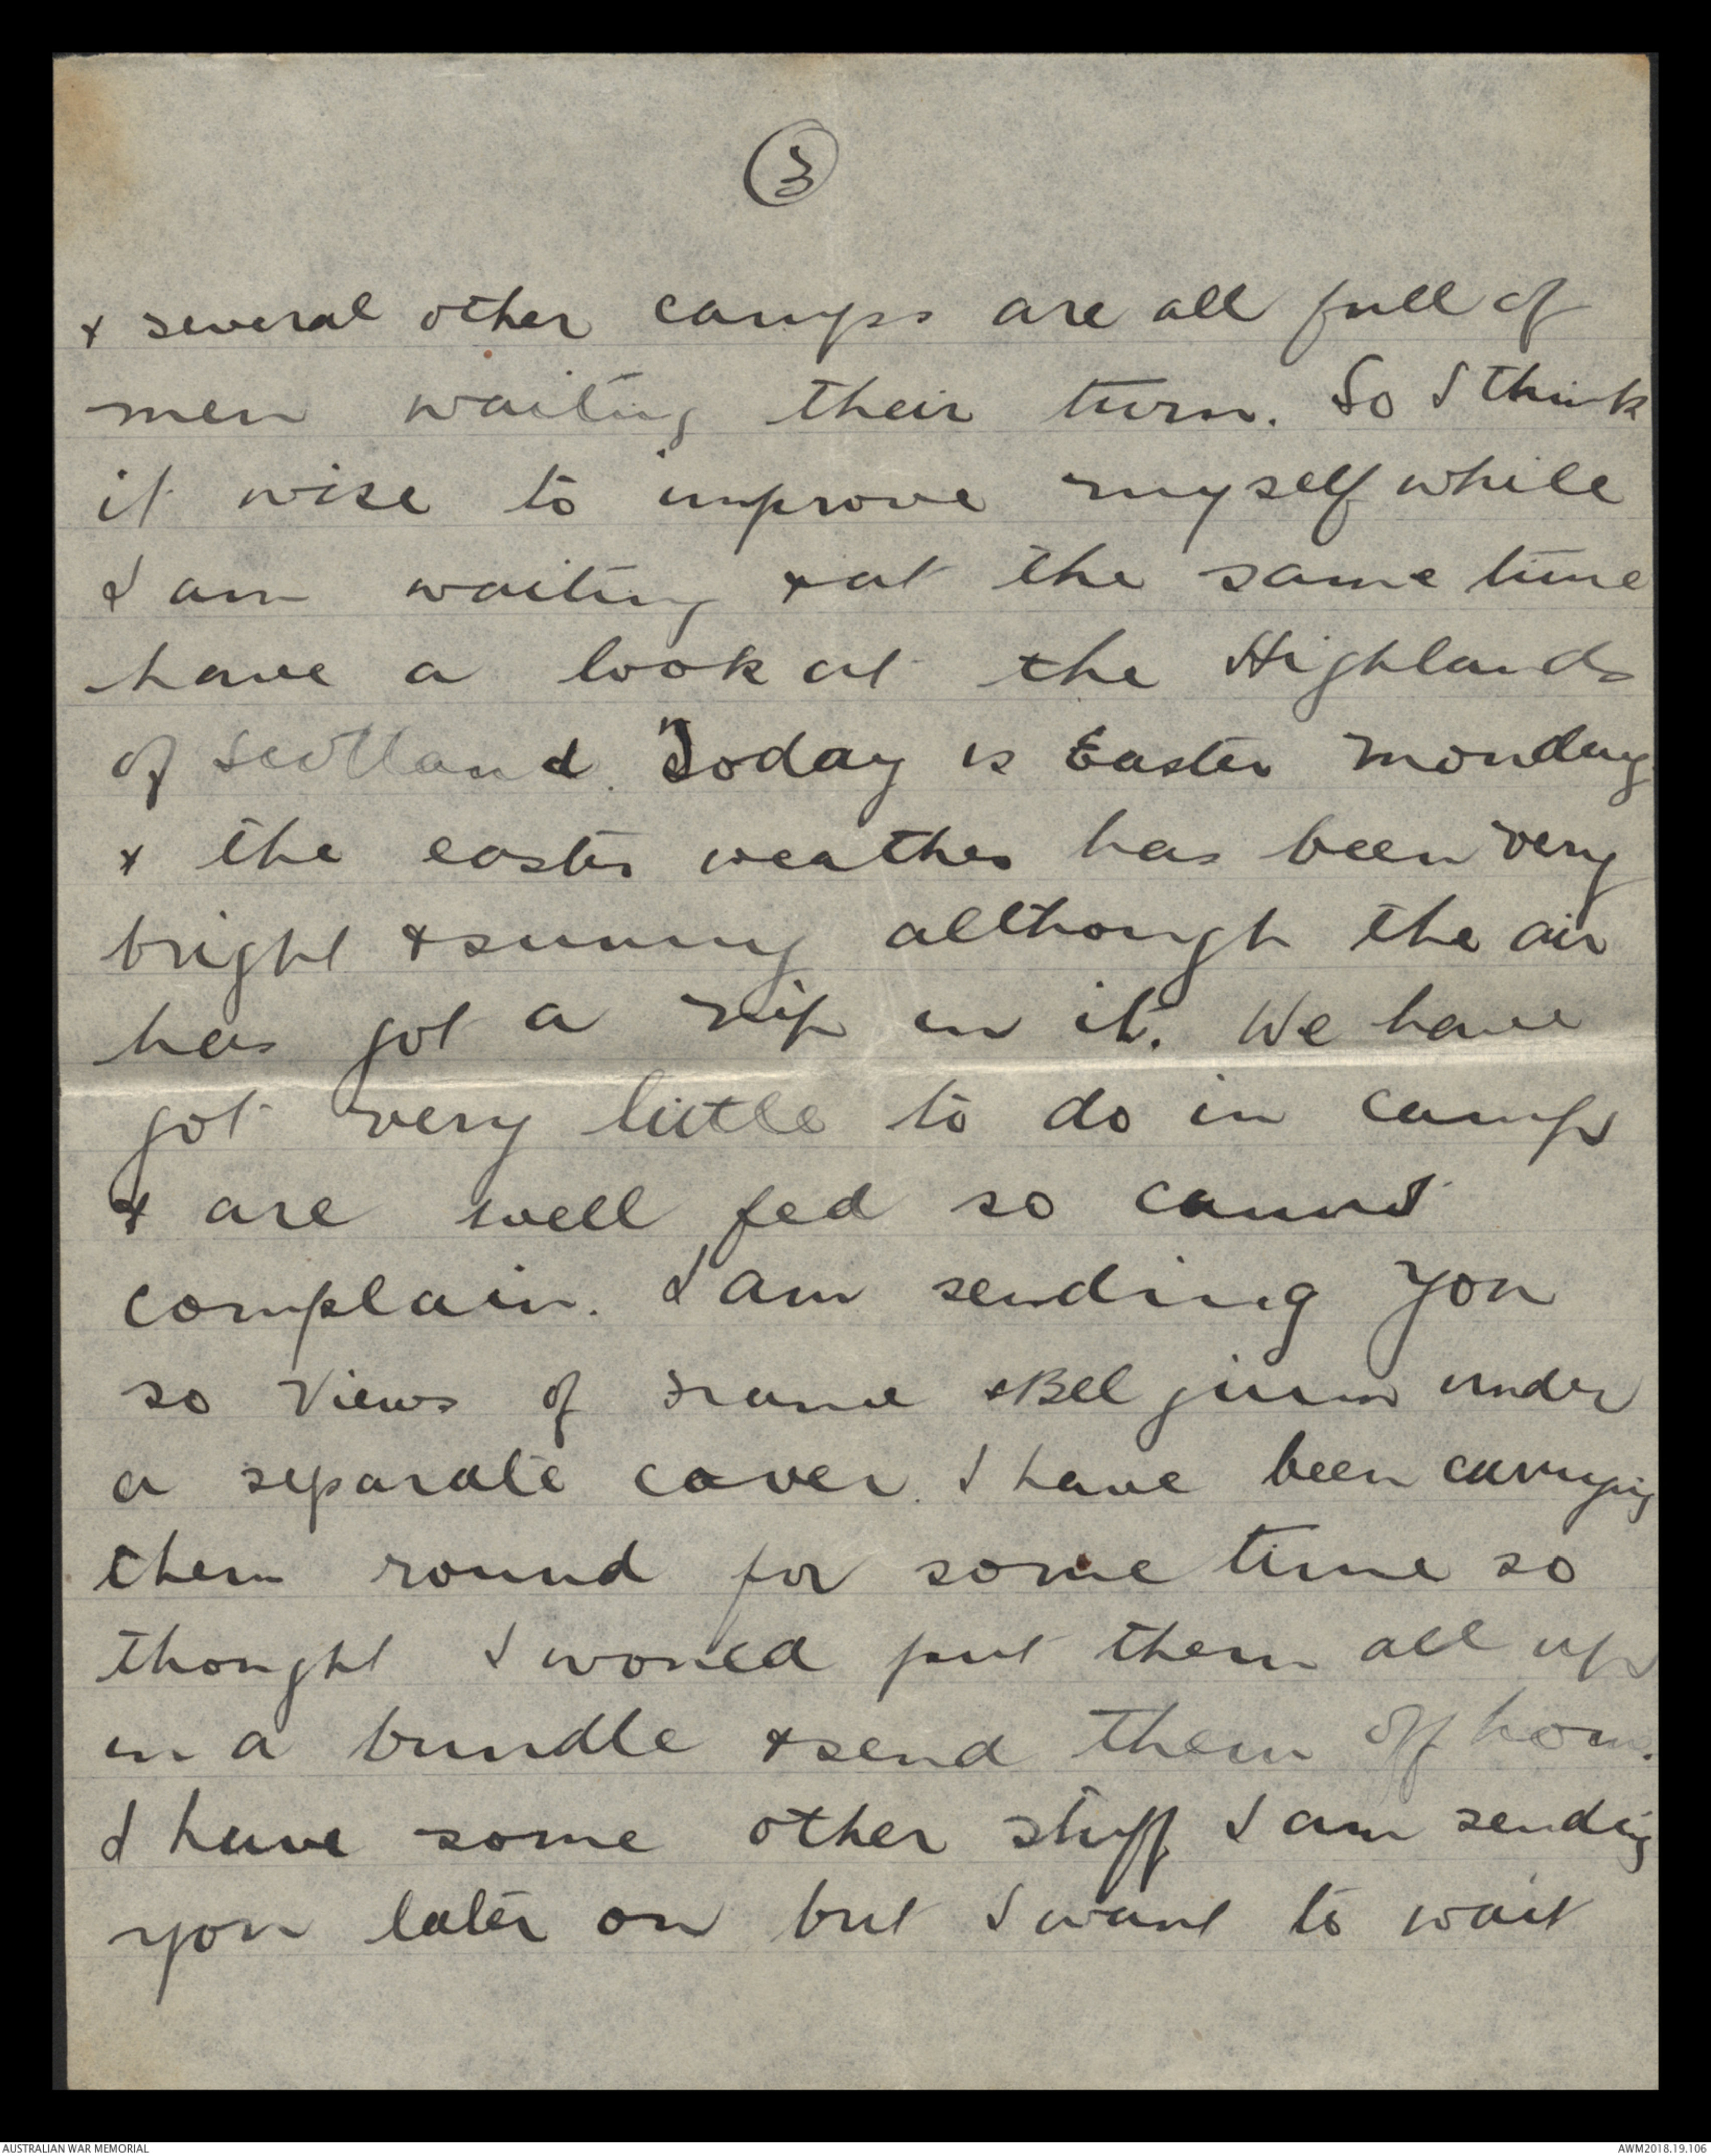 3
& several other camps are all full of
men waiting their turn. So I think
it wise to improve myself while
I am waiting & at the same time
have a look at the Highlands
of Scotland. Today is Easter Monday
& the easter weather has been very
bright & sunny allthough the air
has got a nip in it. We have
got very little to do in camp
& are well fed so cannot
complain. I am sending you
so views of France & Belgium under
a separate cover. I have been carrying
them round for some time so
thought I would put them all up
in a bundle & send them off home.
I have some other stuff I am sending
you later on but I want to wait
AUSTRALIAN WAR MEMORIAL
AWM2018.19.106